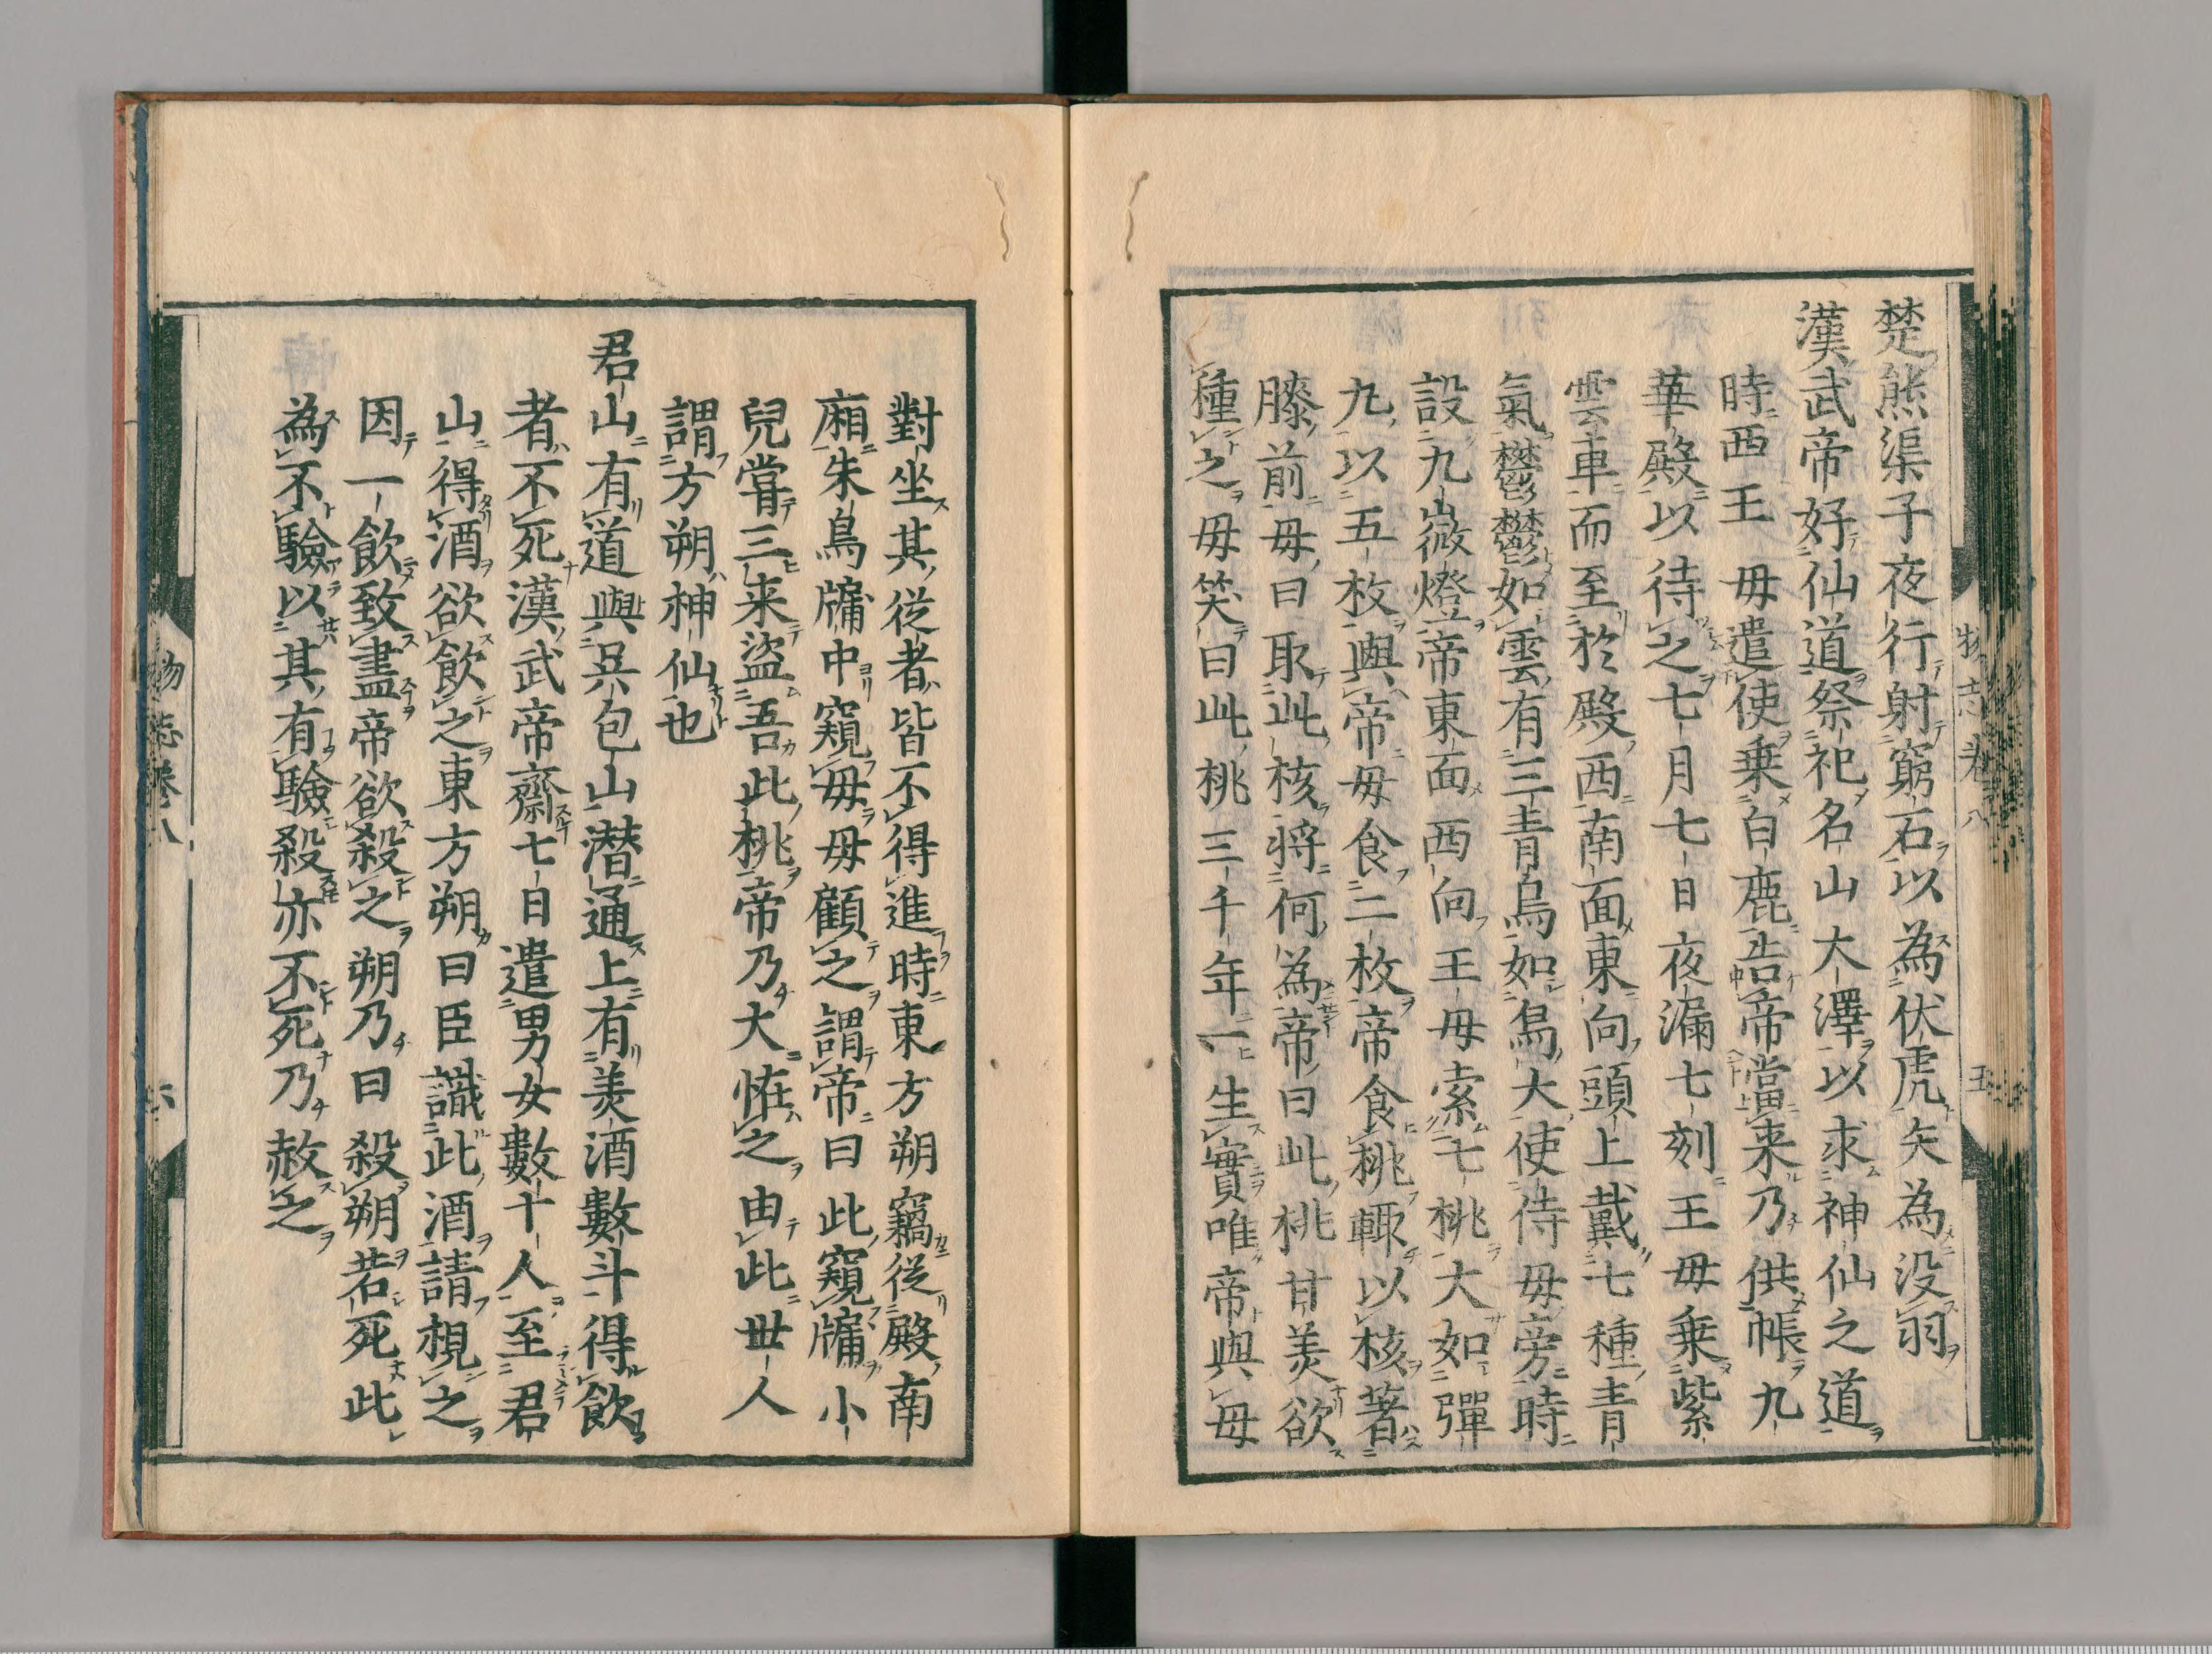 楚熊渠子夜行射窮石以為伏虎矢為没羽
漢武帝好仙道祭祀名山大澤以求神仙之道
時西王毋遣使乗白鹿告帝當来乃供帳九
華殿以待之七月七日夜漏七刻王毋乗紫
雲車而至於殿西南面東向頭上戴七種青
氣鬱鬱如雲有三青鳥如烏大使侍毋旁時
設九微燈帝東面西向王毋索七桃大如彈
丸以五枚與帝毋食二枚帝食桃輙以核著
膝前毋曰取此核将何為帝曰此桃甘美欲
種之毋笑曰此桃三千年一生實唯帝與毋
物志卷八
五
對坐其從者皆不得進時東方朔竊從殿南
廂朱鳥牖中窺毋毋顧之謂帝曰此窺牖小
兒甞三来盗吾此桃帝乃大恠之由此世人
謂方朔神仙也
君山有道與呉包山潜通上有美酒數斗得飲
者不死漢武帝齋七日遣男女數十人至君
山得酒欲飲之東方朔曰臣識此酒請視之
因一飲致盡帝欲殺之朔乃曰殺朔若死此
為不驗以其有驗殺亦不死乃赦之
物志卷八
六